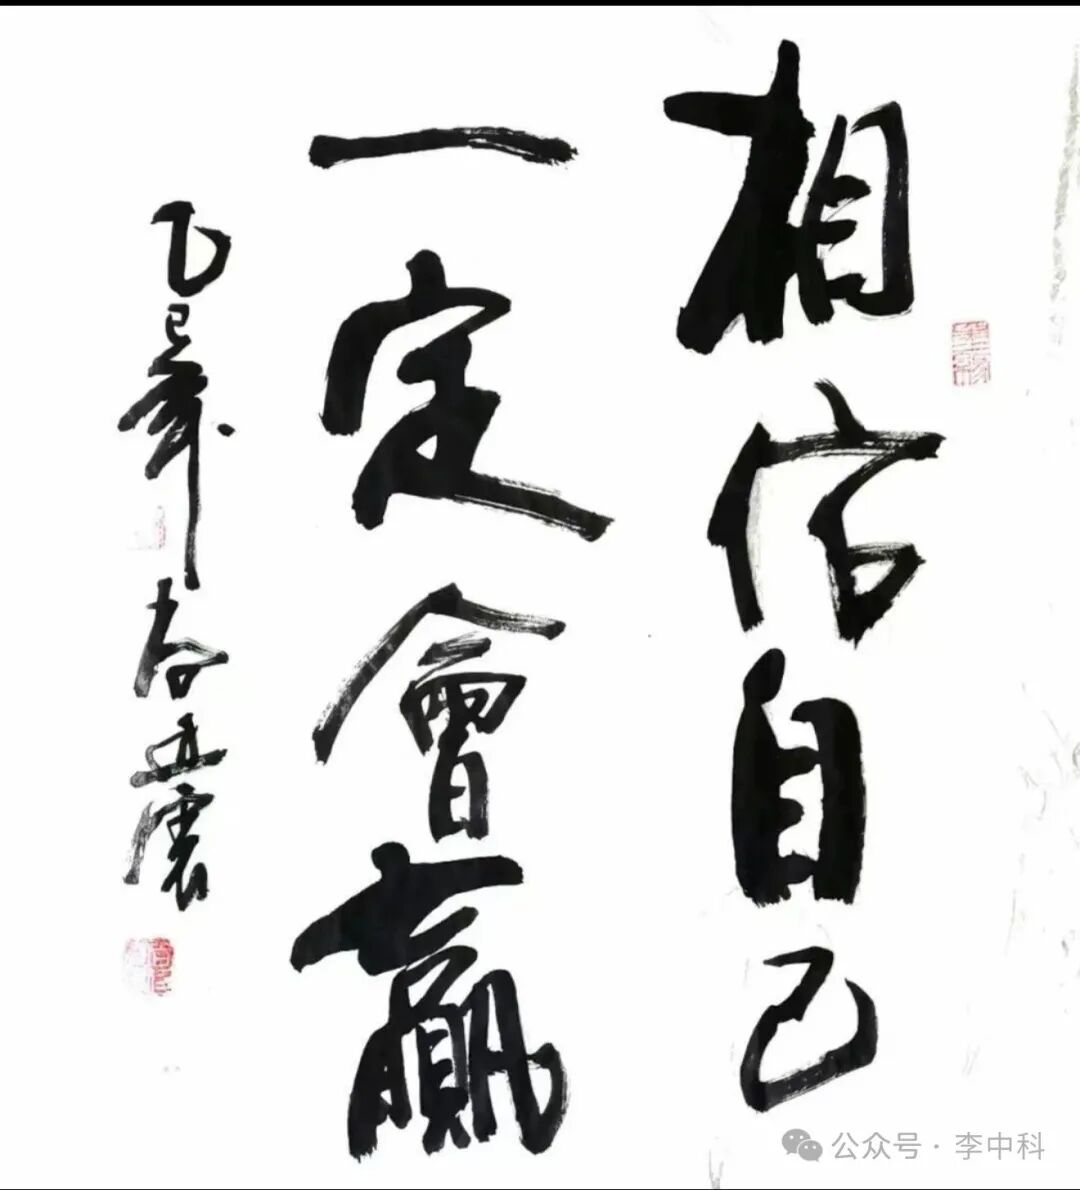 相信自己
一定會贏
乙巳年
公众号·李中科